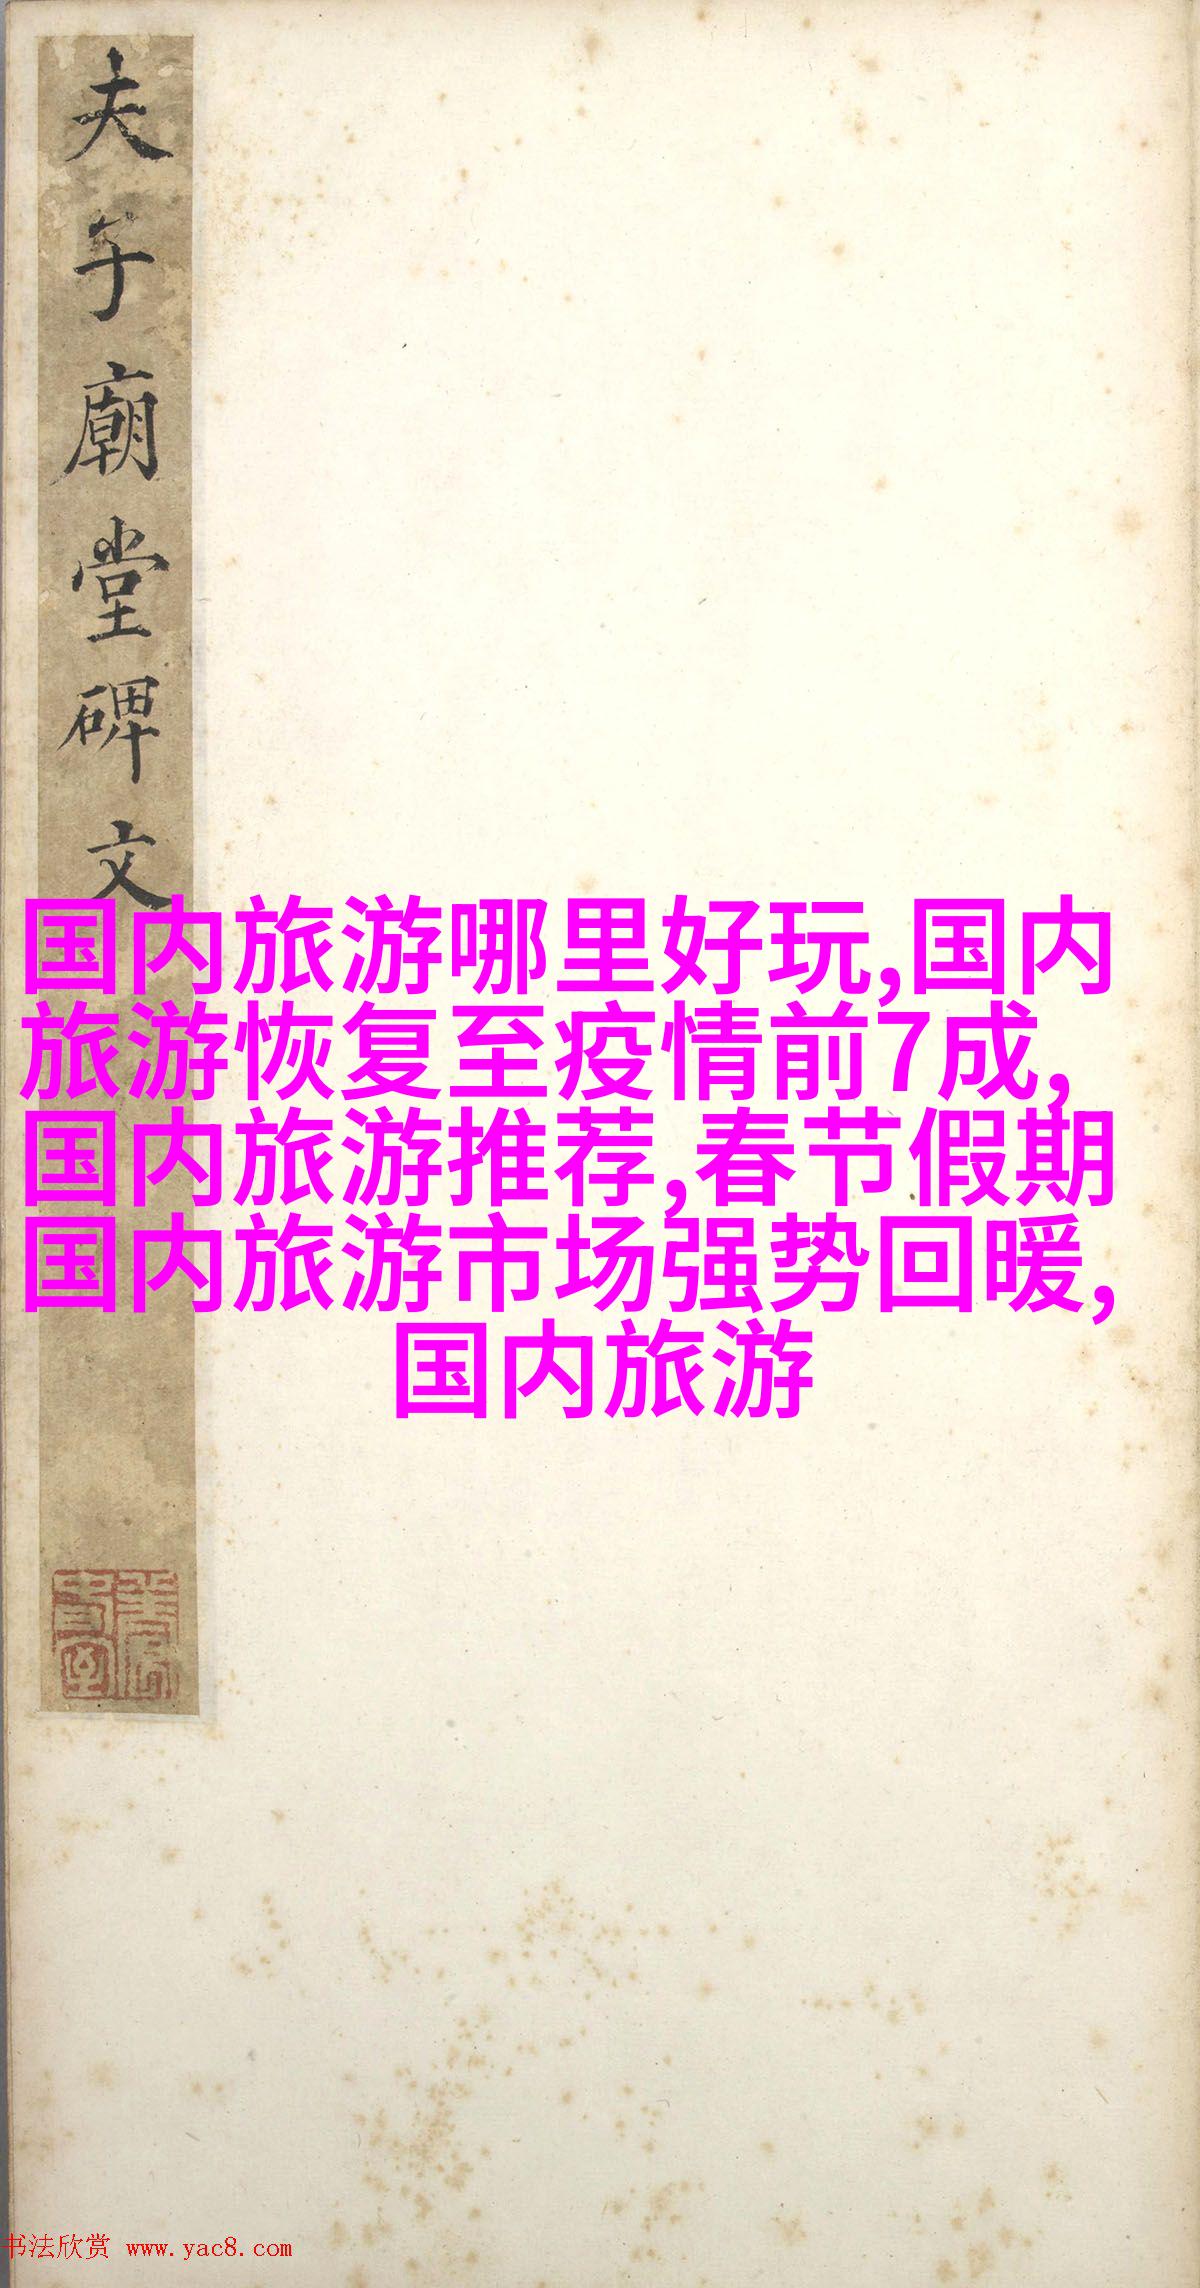 夫子廟堂碑文
国内旅游哪里好玩,国内
旅游恢复至疫情前7成,
国内旅游推荐,春节假期
国内旅游市场强势回暖,
国内旅游
书法欣赏 www.yac8.com